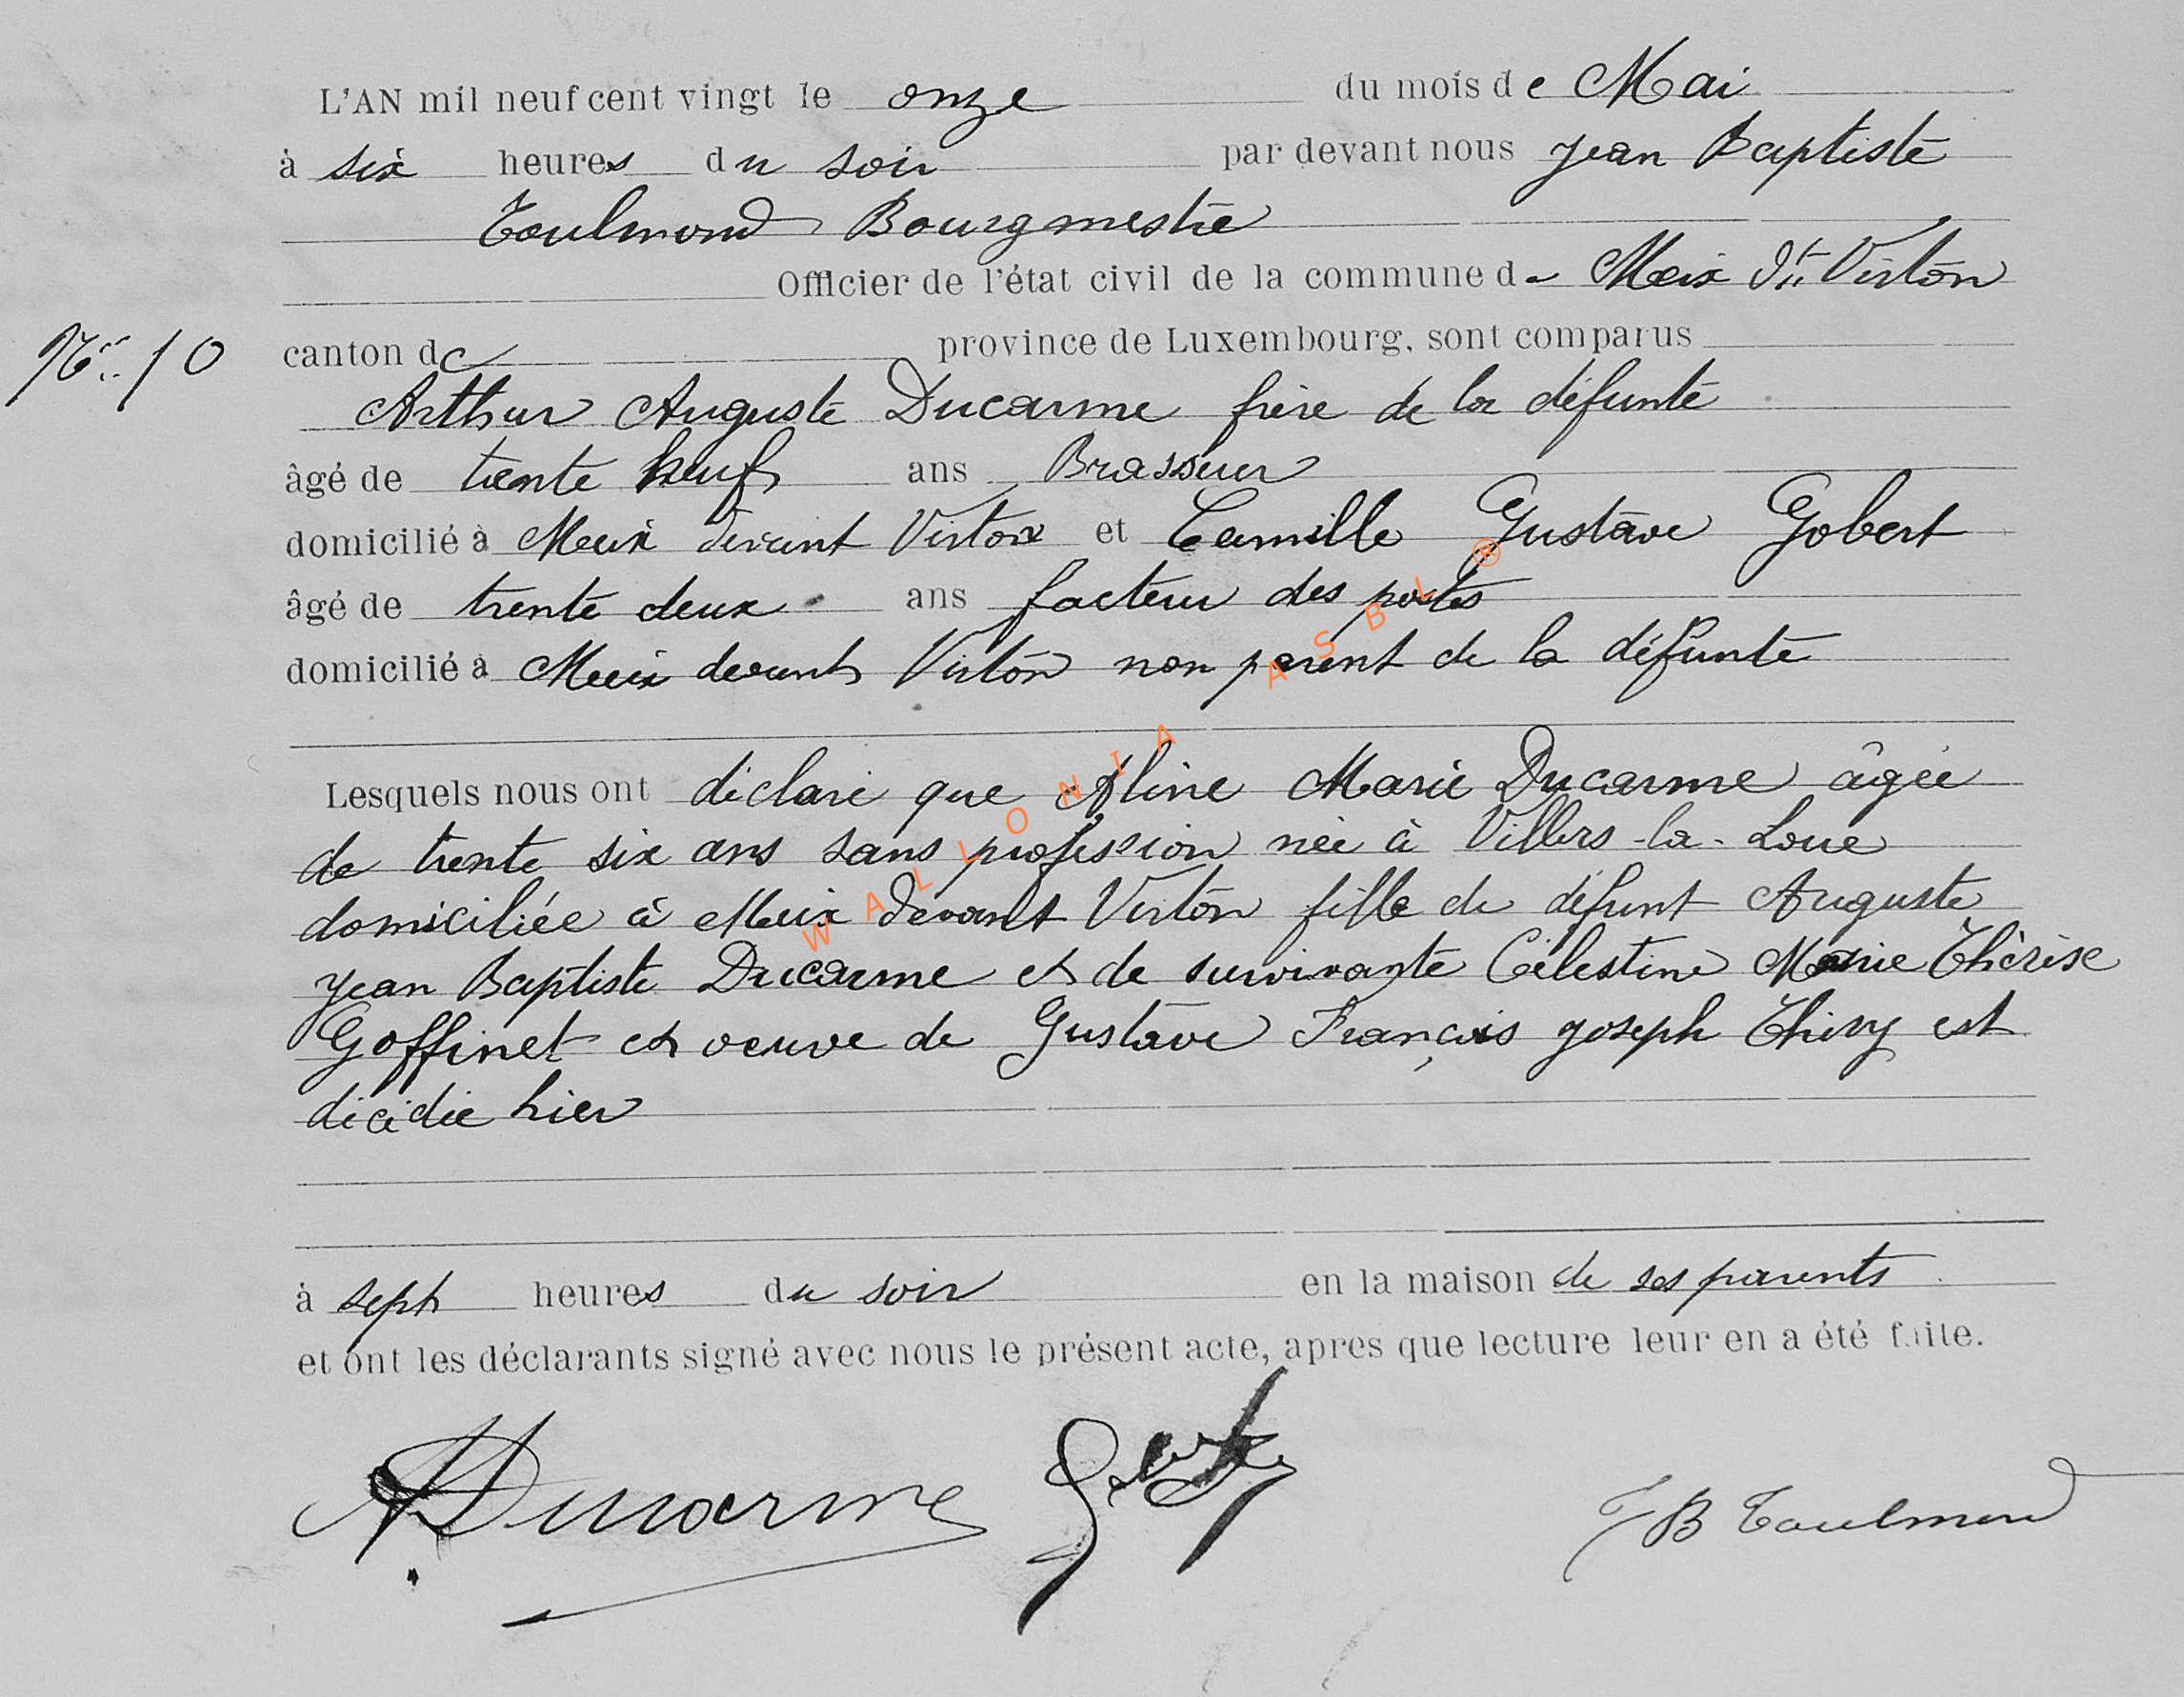 L'AN mil neuf cent vingt le onze du mois de Mai
à six heures du soir par devant nous Jean Baptiste
Toulmond Bourgmestre
Officier de l'état civil de la commune de Meix dt Virton
N° 10
canton de province de Luxembourg, sont comparus
Arthur Auguste Ducarme frère de la défunte
âgé de trente neuf ans Brasseur
domicilié à Meix devant Virton et Camille Gustave Gobert
âgé de trente deux ans facteur des postes
domicilié à Meix devant Virton non parent de la défunte
Lesquels nous ont déclaré que Aline Marie Ducarme âgée
de trente six ans sans profession née à Villers-la-Loue
domiciliée à Meix devant Virton fille de défunt Auguste
Jean Baptiste Ducarme et de survivante Célestine Marie Thérèse
Goffinet et veuve de Gustave François Joseph Thiry est
décédée hier
à sept heures du soir en la maison de ses parents
et ont les déclarants signé avec nous le présent acte, apres que lecture leur en a été faite.
ADucarme JB Toulmond
WALLONIA ASBL ®